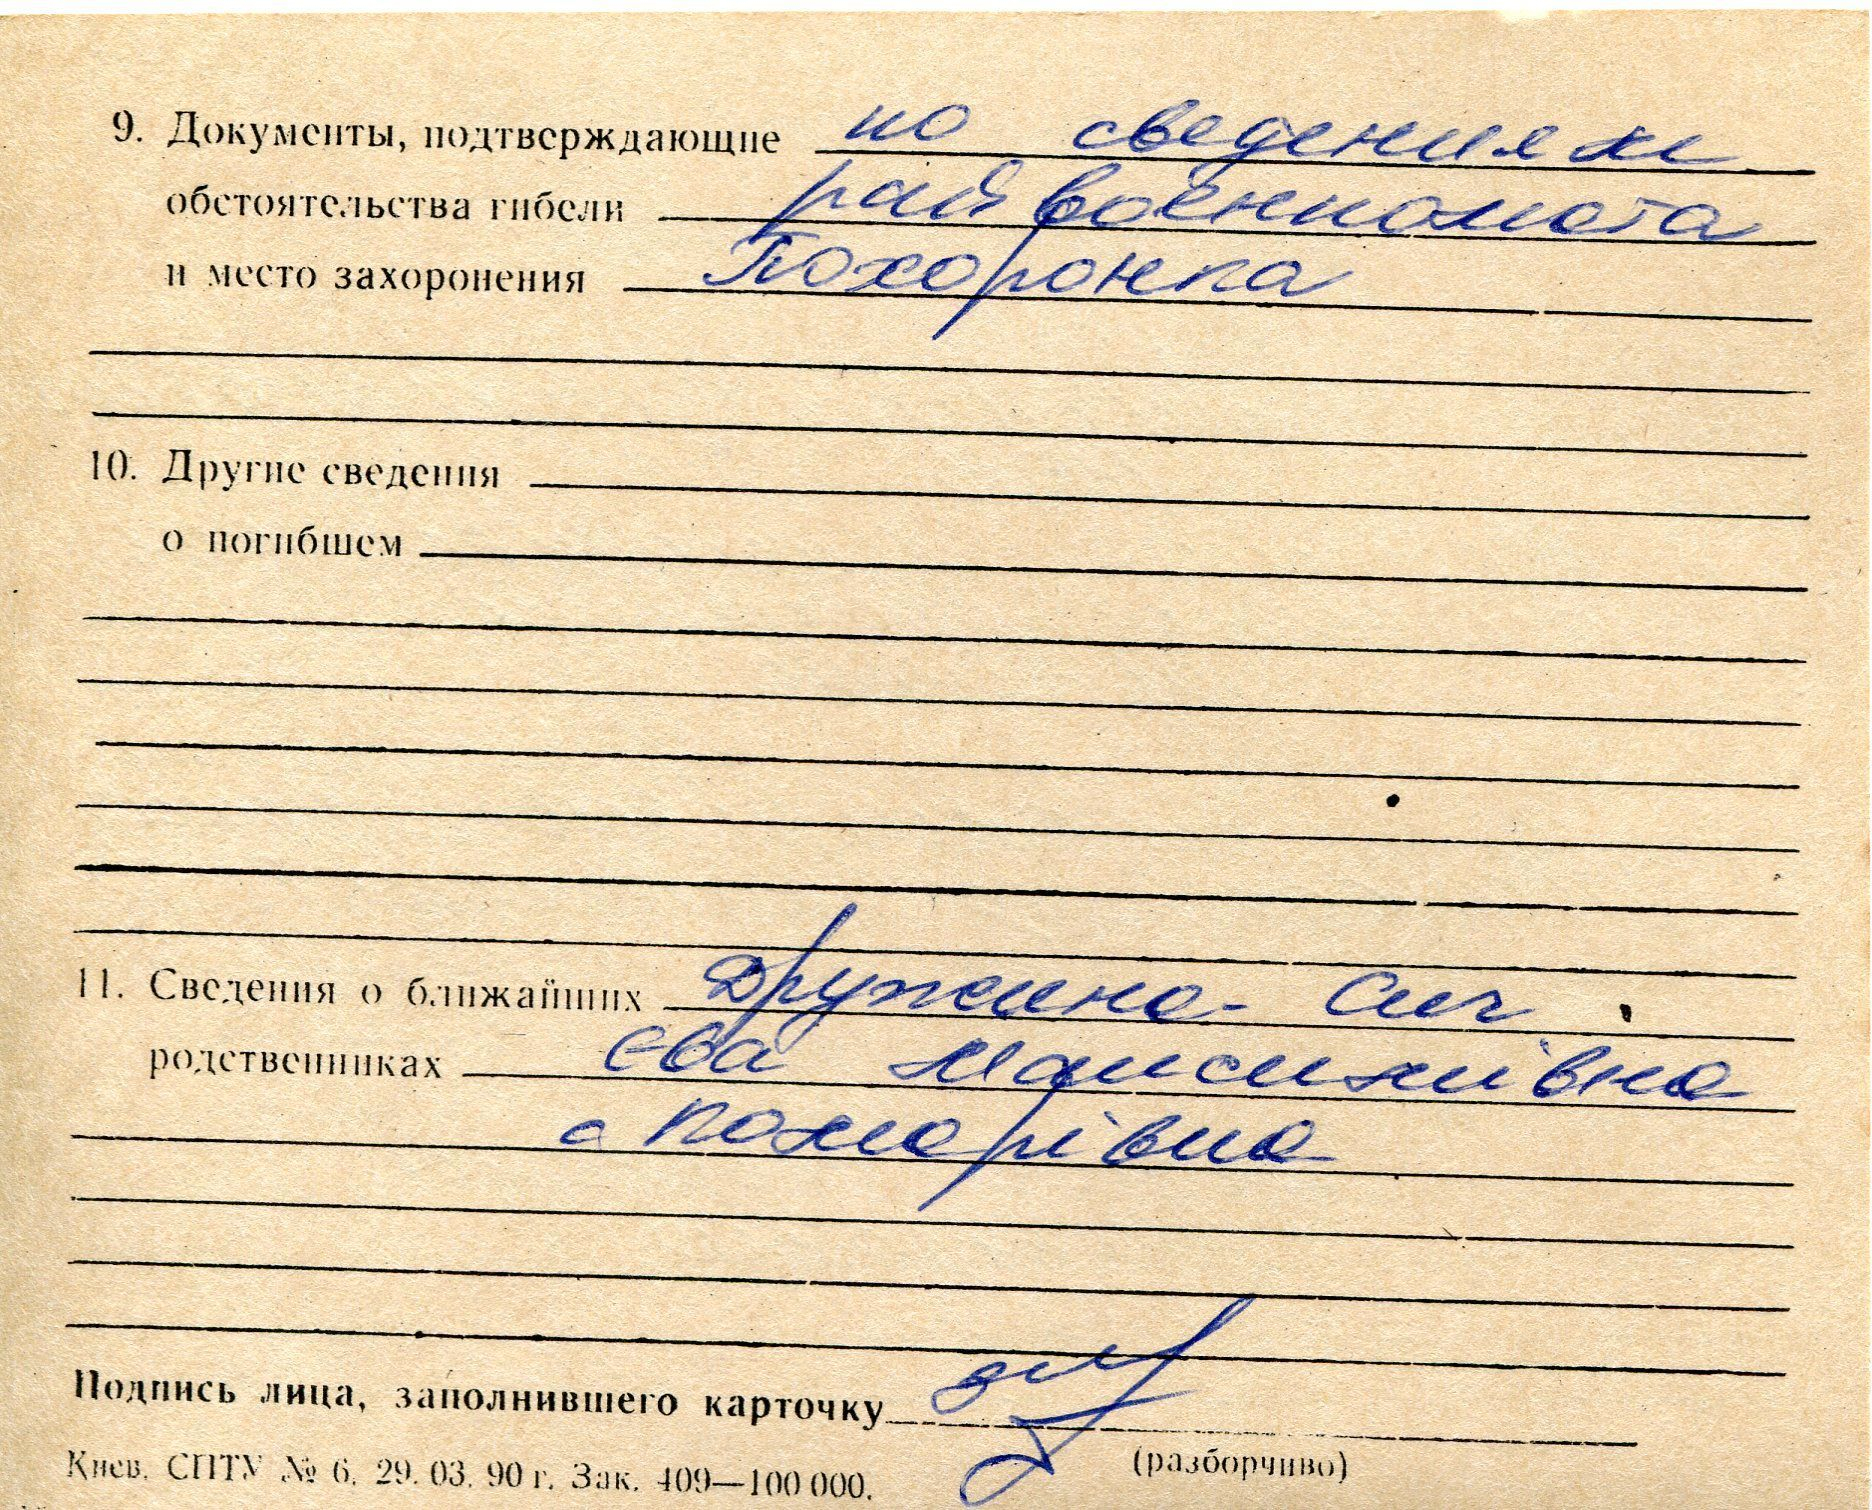 9. Документы, подтверждающие по сведениям
обстоятельства гибели райвоенкомата
и место захоронения Похоронка
10. Другие сведения
о погибшем
11. Сведения о ближайших Дружина - Сич
родственниках Єва Максимівна
с Комарівка
Подпись лица, заполнившего карточку
(разборчиво)
Киев. СПТУ № 6. 29. 03. 90 г. Зак. 409—100 000.